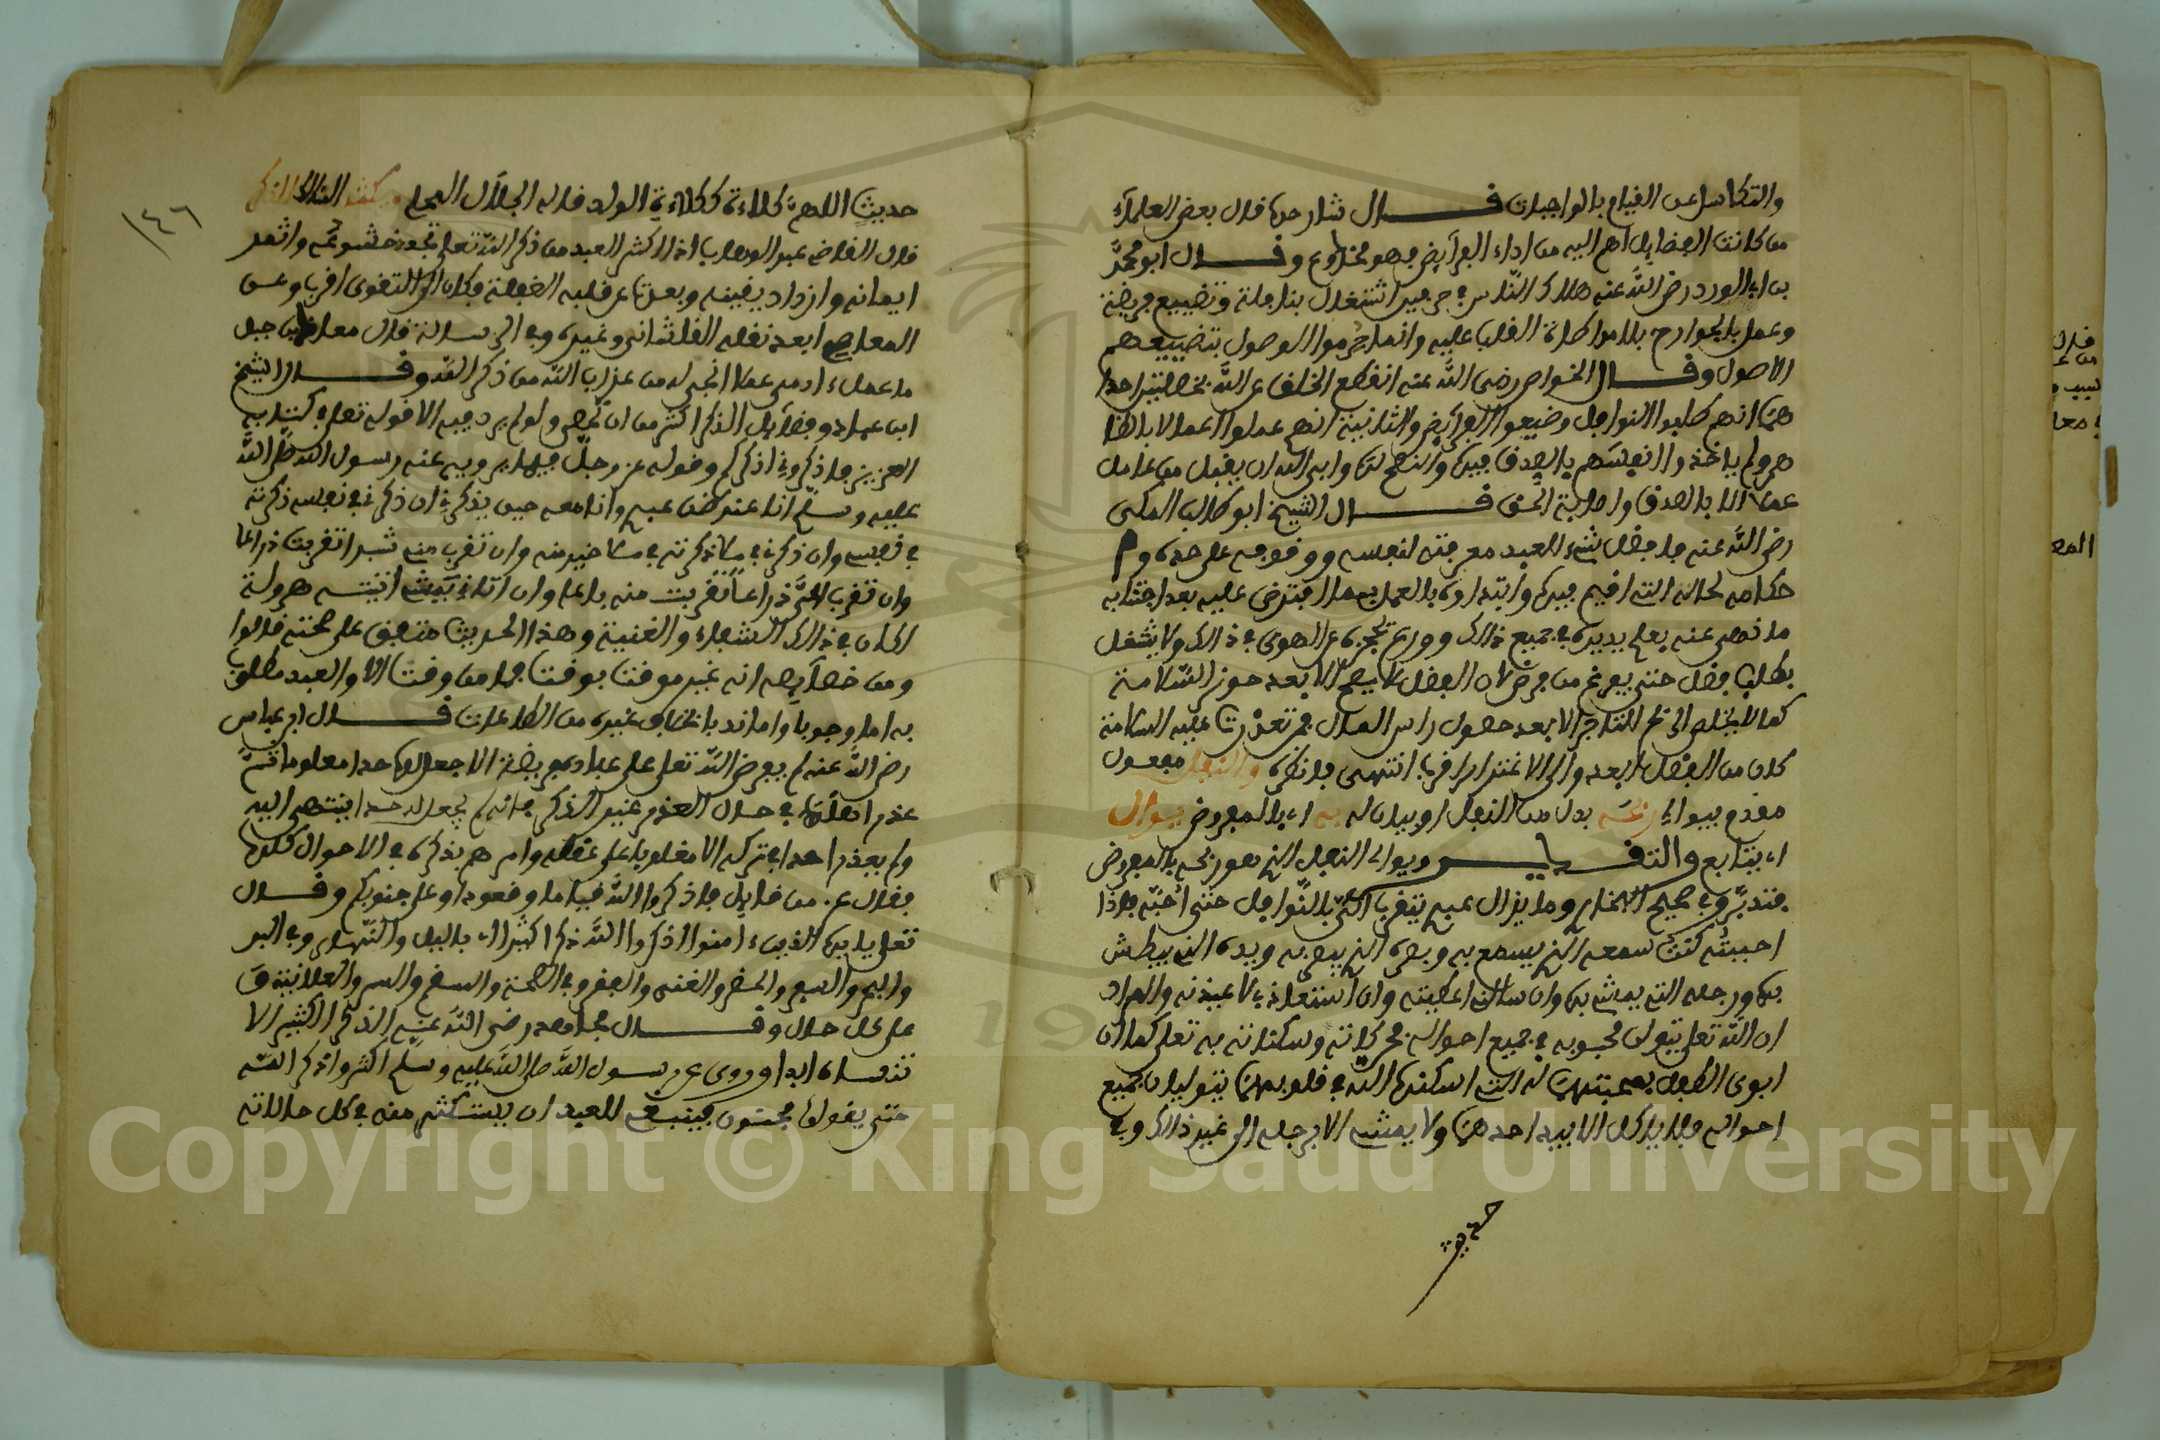 والتكاسل عن القيام بالواجبات قـــــال شارحها قال بعض العلماء
من كانت الفضايل اهم اليه من اداء الفرايض فهو مخدوع وقـــال ابو محمد
بن ابى الورد رضي الله عنه هلاك الناس في حرفين اشتغال بنافلة وتضييع فريضة
وعمل بالجوارح بلا مواطاة القلب عليه وانما حرموا الوصول بتضييعهم
الاصول وقـــال الخواص رضي الله عنه انقطع الخلق عن الله بخصلتين احدا
هما انهم طلبوا النوافل وضيعوا الفرايض والثانية انهم عملوا اعمالا بالظا
هر ولم ياخذوا انفسهم بالصدق فيها والنصح لها وابى الله ان يقبل من عامل
عملا الا بالصدق واصابة الحق قـــــال الشيخ ابو طالب المكي
رضي الله عنه فافضل شيء للعبد معرفته لنفسه ووقوفه على حده و
حكامه لحاله التي اقيم فيها وابتداوه بالعمل بما افترض عليه بعد اجتنابه
ما نهى عنه بعلم يدبره في جميع ذالك وورع يحجزه عن الهوى في ذالك ولا يشغل
بطلب فضل حتى يفرغ من فرض لان الفضل لا يصح الا بعد حوز السلامة
كما لا يخلص الربح للتاجر الا بعد حصول راس المال فمن تعذرت عليه السلامة
كان من الفضل ابعد والى الاغترار اقرب انتهى فانظره والنفل مفعول
مقدم بيوالي ربحه بدل من النفل او بيان له به اي بالمفروض يوال
اي يتابع والتقـــديـــر ويوالي النفل الذي هو ربحه بالمفروض
فتدبر وفي صحيح البخاري وما يزال عبدي يتقرب الي بالنوافل حتى احبه فاذا
احببته كنت سمعه الذي يسمع به وبصره الذي يبصر به ويده التي يبطش
بها ورجله التي يمشي بها وان سالني اعطيته وان استعاذ بي لاعيذنه والمراد
ان الله تعلى يتولى محبوبه في جميع احواله فحركاته وسكناته به تعلى كما ان
ابوي الطفل بمحبتهما له التي اسكنها الله في قلوبهما يتوليان جميع
احواله فلا ياكل الا بيد احدهما ولا يمشي الا برجله الى غير ذالك وفي
حديث
١٤٦
حديث اللهم كلاءة ككلاءة الوليد قاله الجلال المحلي ويكثر الذكر
قال القاضي عبد الوهاب اذا اكثر العبد من ذكر الله تعلى تجدد خشوعه واثمر
ايمانه وازداد يقينه وبعدت عن قلبه الغفلة وكان الى التقوى اقرب وعن
المعاصي ابعد نقله القلشاني وغيره وفي الرسالة قال معاذ بن جبل
ما عمل ادمي عملا انجى له من عذاب الله من ذكر الله وقـــال الشيخ
ابن عباد وفضايل الذكر اكثر من ان تحصر ولو لم يرد فيه الا قوله تعلى في كتابه
العزيز فاذكروني اذكركم وقوله عز وجل فيما يرويه عنه رسول الله صلى الله
عليه وسلم انا عند ظن عبدي وانا معه حين يذكرني ان ذكرني في نفسه ذكرته
في نفسي وان ذكرني في ملا ذكرته في ملا خير منه وان تقرب مني شبرا تقربت ذراعا
وان تقرب الي ذراعا تقربت منه باعا وان اتاني يمشي اتيته هرولة
لكان في ذالك الشفاء والغنية وهذا الحديث متفق على صحته قالوا
ومن خصايصه انه غير موقت بوقت فما من وقت الا والعبد مطلوب
به اما وجوبا واما ندبا بخلاف غيره من الطاعات قـــال ابن عباس
رضي الله عنه لم يفرض الله تعلى على عباده فريضة الا جعل لها حدا معلوما ثم
عذر اهلها في حال العذر غير الذكر فانه لم يجعل له حدا ينتهي اليه
ولم يعذر احدا في تركه الا مغلوبا على عقله وامرهم بذكره في الاحوال كلها
فقال عز من قايل فاذكروا الله قياما وقعودا وعلى جنوبكم وقـــال
تعلى يايها الذين ءامنوا اذكروا الله ذكرا كثيرا اي بالليل والنهار وفي البر
والبحر والسفر والحضر والغنى والفقر وفي الصحة والسقم والسر والعلانية و
على كل حال وقـــــال مجاهد رضي الله عنه الذكر الكثير الا
تنساه ابدا وروي عن رسول الله صلى الله عليه وسلم اكثروا ذكر الله
حتى يقولوا مجنون فينبغي للعبد ان يستكثر منه في كل حالاته
Copyright © King Saud University